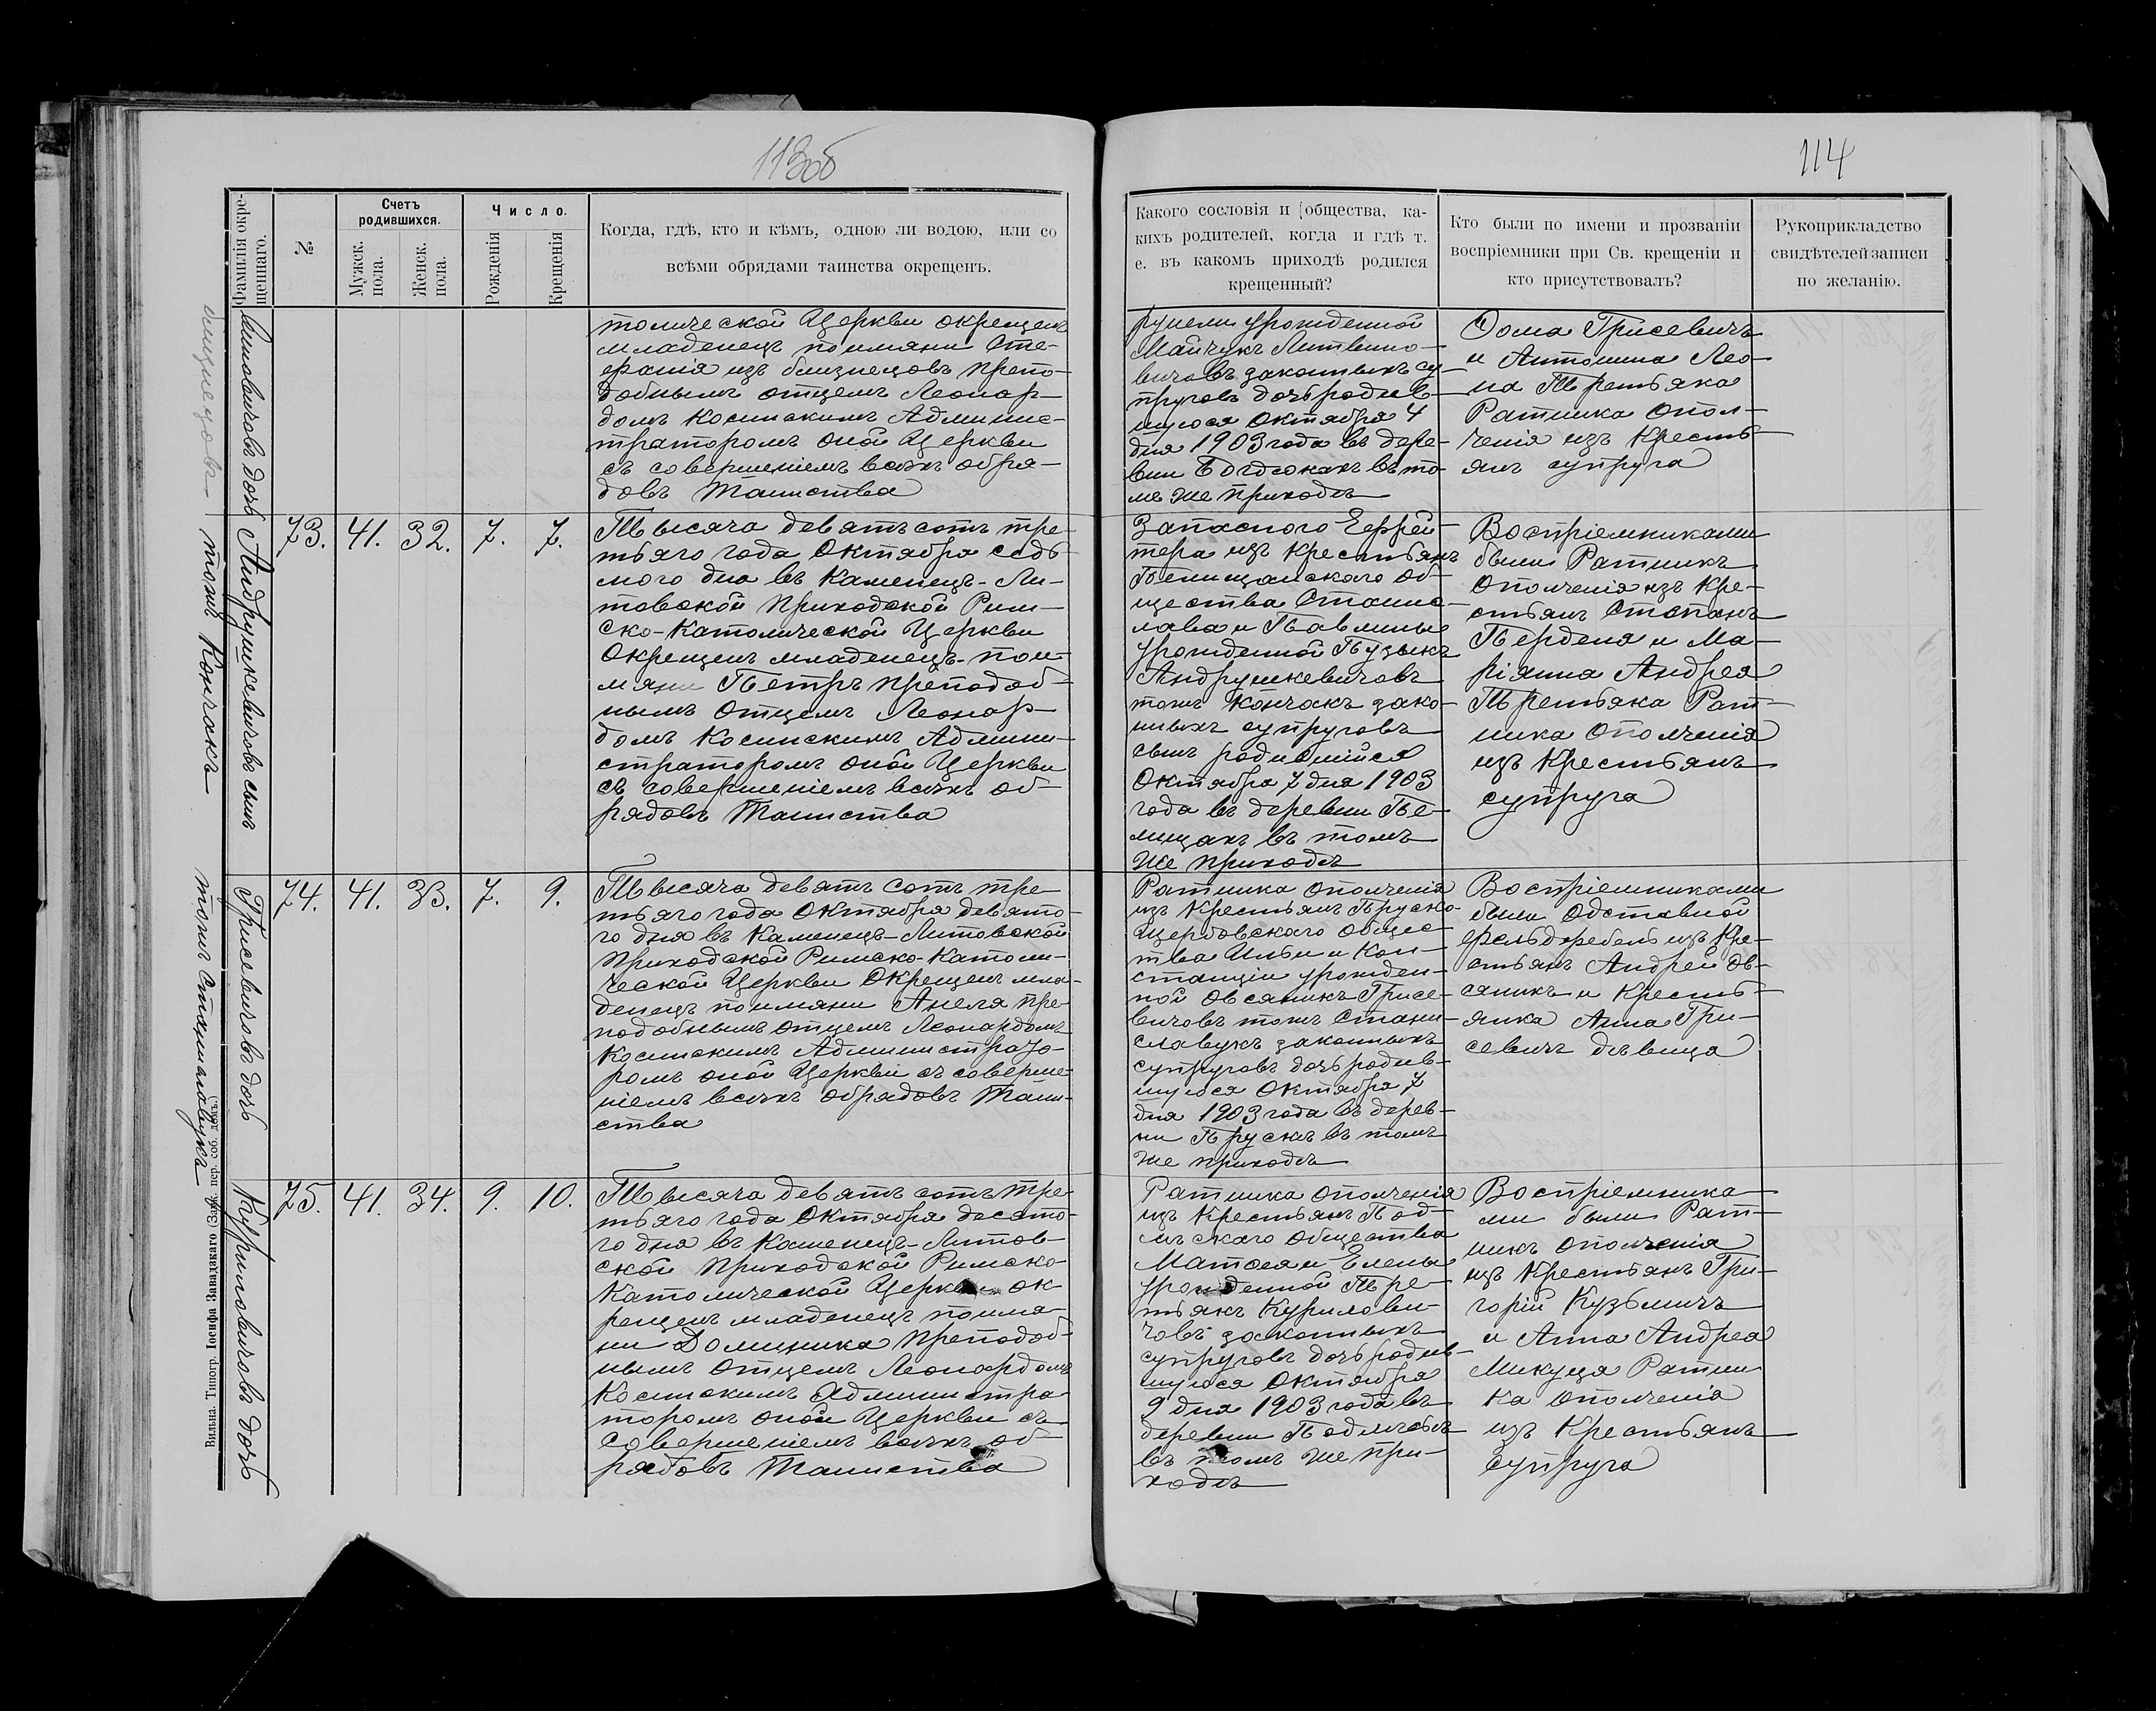 113об
Фамилія окре-
щеннаго.
№
Счетъ
родившихся.
Мужск.
пола.
Женск.
пола.
Число.
Рожденія
Крещенія
Когда, гдѣ, кто и кѣмъ, одною ли водою, или со
всѣми обрядами таинства окрещенъ.
дочь
толической Церкви окрещенъ
младенецъ поимяни Сте-
фанія изъ близнецовъ препо-
добнымъ отцемъ Леонар-
домъ Косинскимъ Админис-
траторомъ оной Церкви
съ совершеніемъ всѣхъ обря-
довъ Таинства
Андрушкевичовъ сынъ
тожъ Кончакъ
73.
41.
32.
7.
7.
Тысяча девятьсотъ тре-
тьяго года Октября седь-
мого дня въ Каменецъ-Ли-
товской приходской Рим-
ско-Католической Церкви
Окрещенъ младенецъ-пои-
мяни Петръ преподоб-
нымъ Отцемъ Леонар-
домъ Косинскимъ Админи-
страторомъ оной Церкви
съ совершеніемъ всѣхъ об-
рядовъ Таинства
Грисевичовъ дочь
тожъ Станиславукъ
74.
41.
33.
7.
9.
Тысяча девять сотъ тре-
тьяго года Октября девято-
го дня въ Каменецъ-Литовской
приходской Римско-Католи-
ческой Церкви Окрещенъ мла-
денецъ поимяни Анеля пре-
подобнымъ отцемъ Леонардомъ
Косинскимъ Администрато-
ромъ оной Церкви съ соверше-
ніемъ всѣхъ обрядовъ Таин-
ства
Куриловичовъ дочь
75.
41.
34.
9.
10.
Тысяча девять сотъ тре-
тьяго года Октября десято-
го дня въ Каменецъ-Литов-
ской приходской Римско-
Католической Церкви ок-
рещенъ младенецъ поимя-
ни Доминика преподоб-
нымъ отцемъ Леонардомъ
Косинскимъ Администра-
торомъ оной Церкви съ
совершеніемъ всѣхъ об-
рядовъ Таинства
Вильна. Типогр. Іосифа Завадзкаго
114
Какого сословія и общества, ка-
кихъ родителей, когда и гдѣ т.
е. въ какомъ приходѣ родился
крещенный?
Кто были по имени и прозванію
воспріемники при Св. крещеніи и
кто присутствовалъ?
Рукоприкладство
свидѣтелей записи
по желанію.
урожденной
Майчукъ Литвино-
вичовъ законныхъ су-
пруговъ дочь родив-
шуюся Октября 4
дня 1903 года въ дере-
вни въ то-
мъ же приходѣ
Ѳома Грисевичъ
и Антонина Лео-
на Третьяка
Ратника опол-
ченія изъ Кресть-
янъ супруга
Запасного Ефрей-
тера изъ крестьянъ
Пелищанскаго Об-
щества Станис-
лава и Павлины
урожденной Пузыкъ
Андрушкевичовъ
тожъ Кончакъ зако-
нныхъ супруговъ
сынъ родившійся
Октября 7 дня 1903
года въ деревни Пе-
лищахъ въ томъ
же приходѣ
Воспріемниками
были Ратникъ
Ополченія изъ Кре-
стьянъ Степанъ
Перденя и Ма-
ріянна Андрея
Третьяка Рат-
ника Ополченія
изъ Крестьянъ
супруга
Ратника ополченія
изъ Крестьянъ Пруско-
Щербовскаго Общес-
тва Ильи и Кон-
станціи урожден-
ной Овсяникъ Грисе-
вичовъ тожъ Стани-
славукъ законныхъ
супруговъ дочь родив-
шуюся Октября 7
дня 1903 года въ дерев-
ни Прускѣ въ томъ
же приходѣ
Воспріемниками
были Одставной
фельдфебель изъ Кре-
стьянъ Андрей Ов-
сяникъ и Кресть-
янка Анна Гри-
севичъ дѣвица
Ратника ополченія
изъ Крестьянъ Под-
льскаго Общества
Матѳея и Елены
урожденной Тре-
тьякъ Курилови-
човъ законныхъ
супруговъ дочь родив-
шуюся Октября
9 дня 1903 года въ
деревни
въ томъ же при-
ходѣ
Воспріемника-
ми были Рат-
никъ ополченія
изъ Крестьянъ Гри-
горій Кузьмичъ
и Анна Андрея
Микуця Ратни-
ка ополченія
изъ Крестьянъ
Супруга